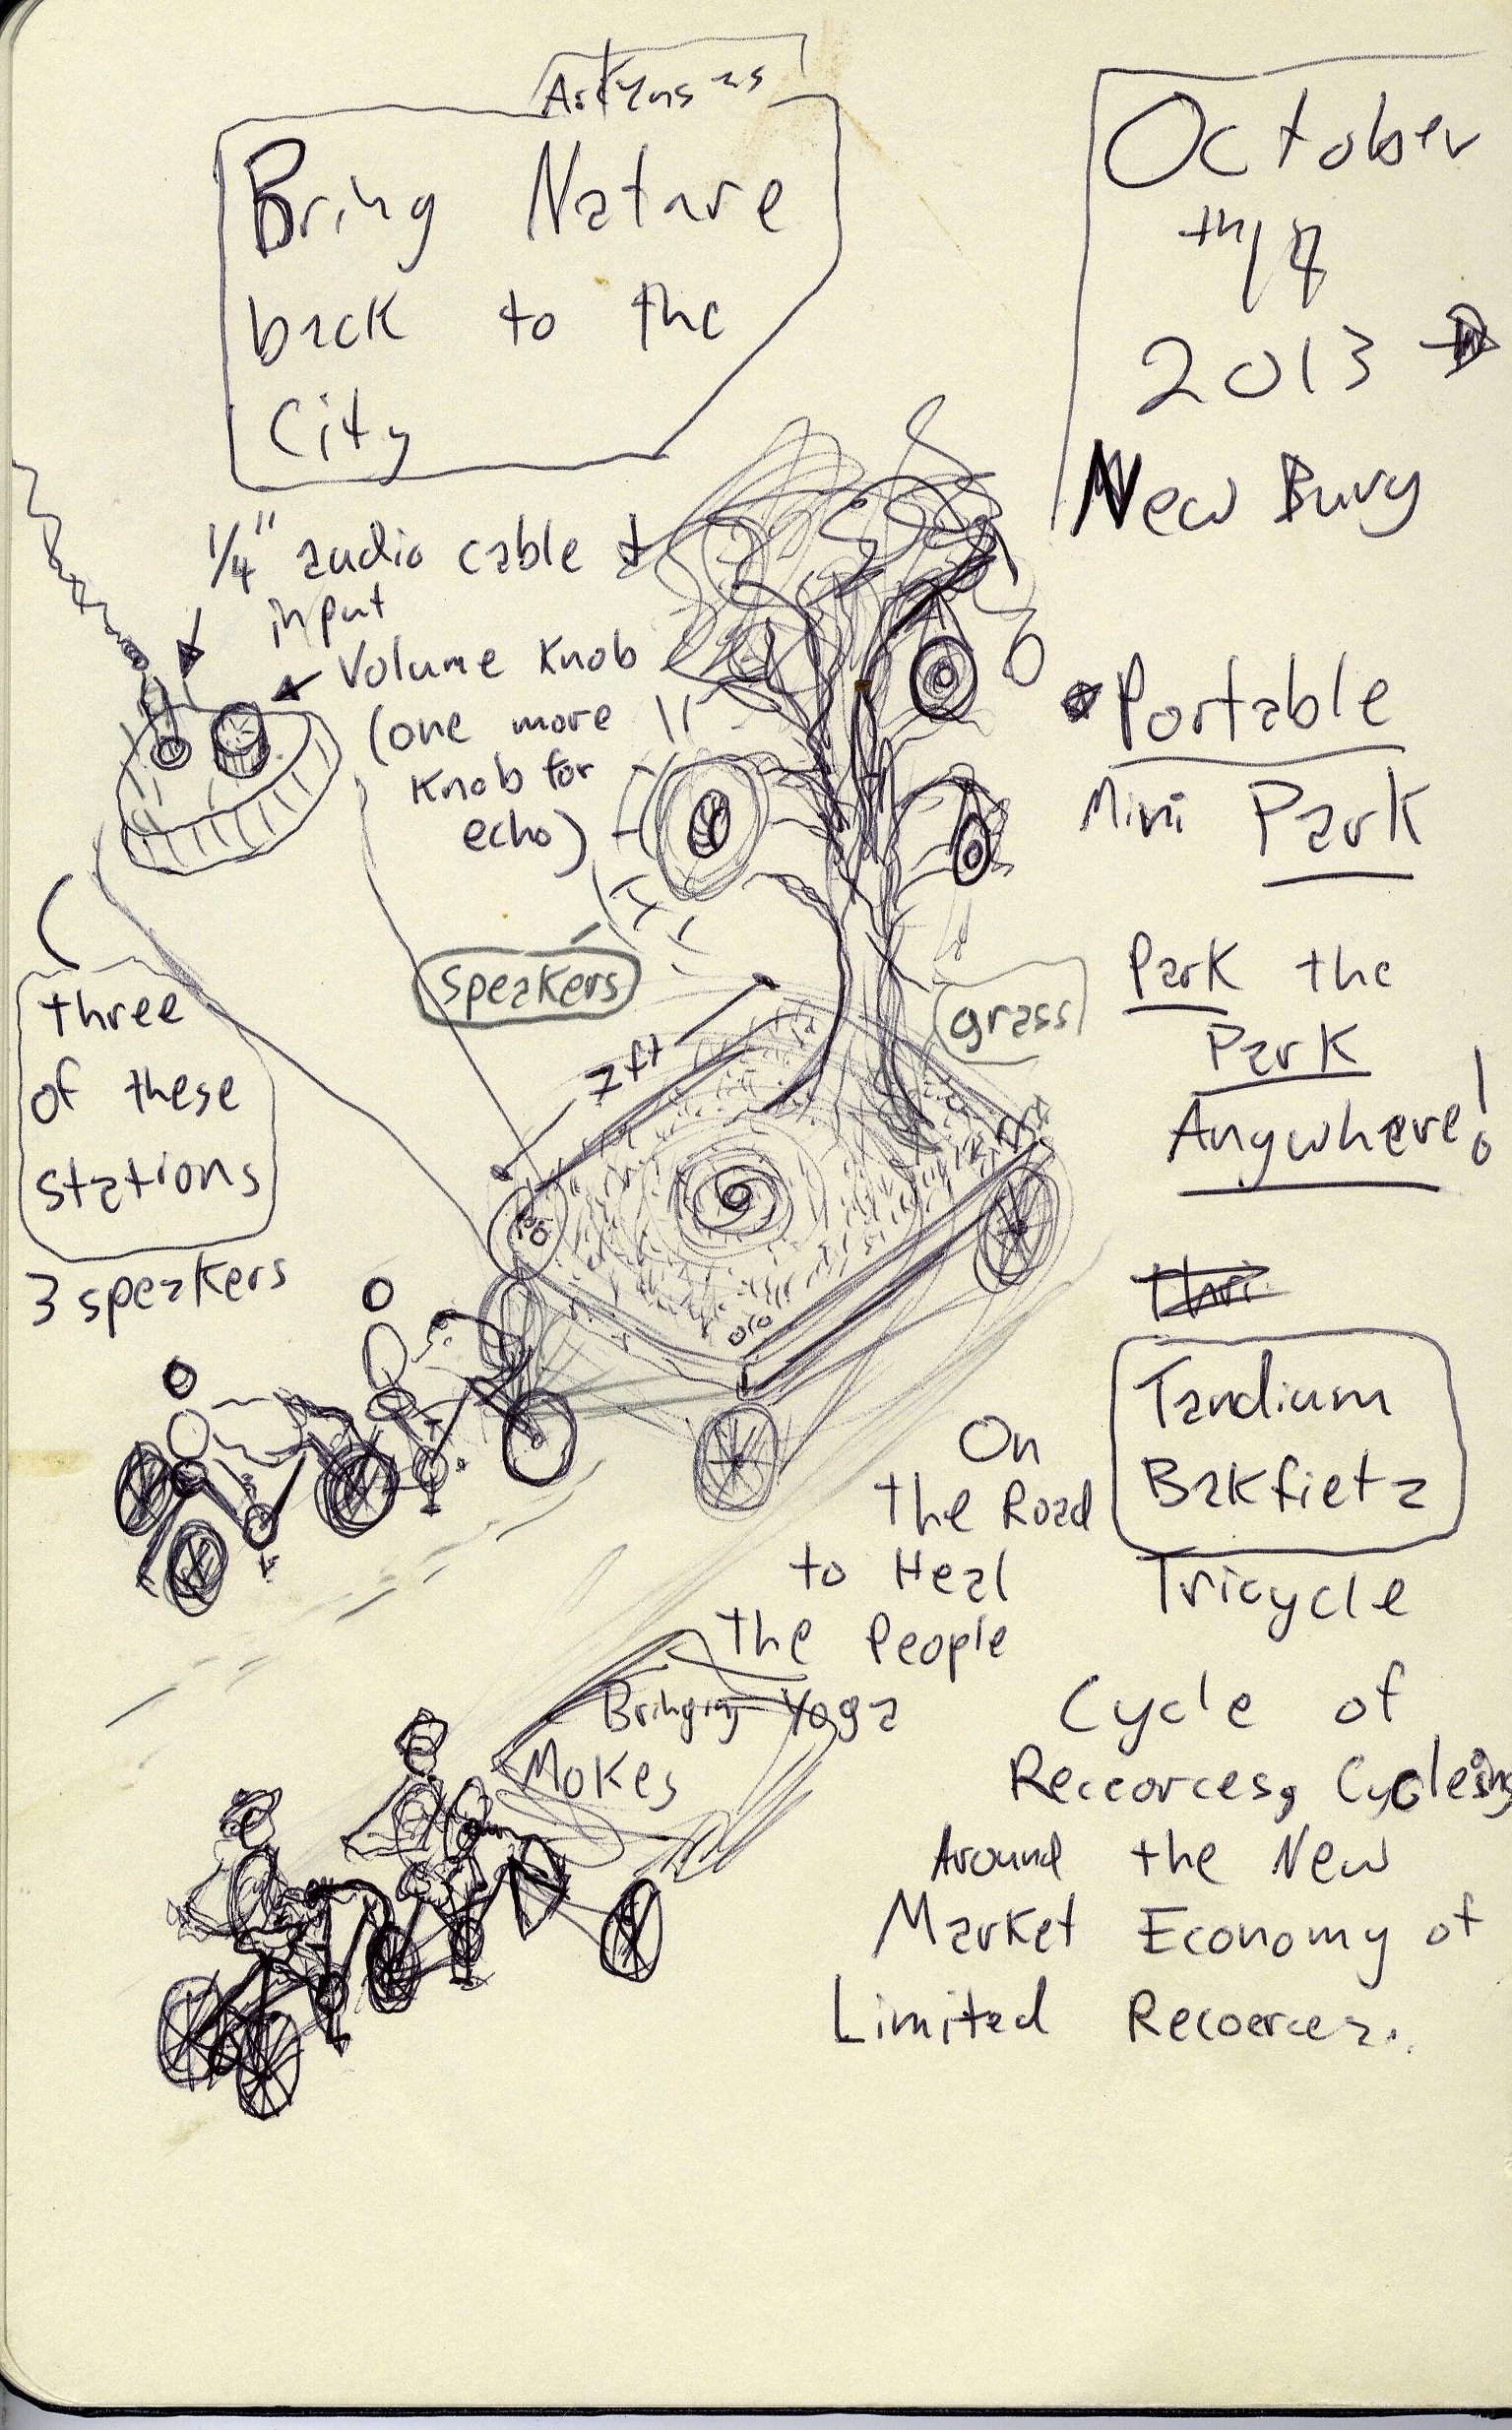 Arkansas
Bring Nature
back to the
City
October
th
2013
New Bury
1/4" audio cable
input
Volume Knob
(one more
Knob for
echo)
Portable
Mini Park
speakers
grass
7ft
Park the
Park
Anywhere!
three
of these
stations
3 speakers
Tandium
Bakfietz
Tricycle
On
the Road
to Heal
the People
Bringing Yoga
Mokes
Cycle of
Receorces, Cycleing
Around the New
Market Economy of
Limited Recoerces.